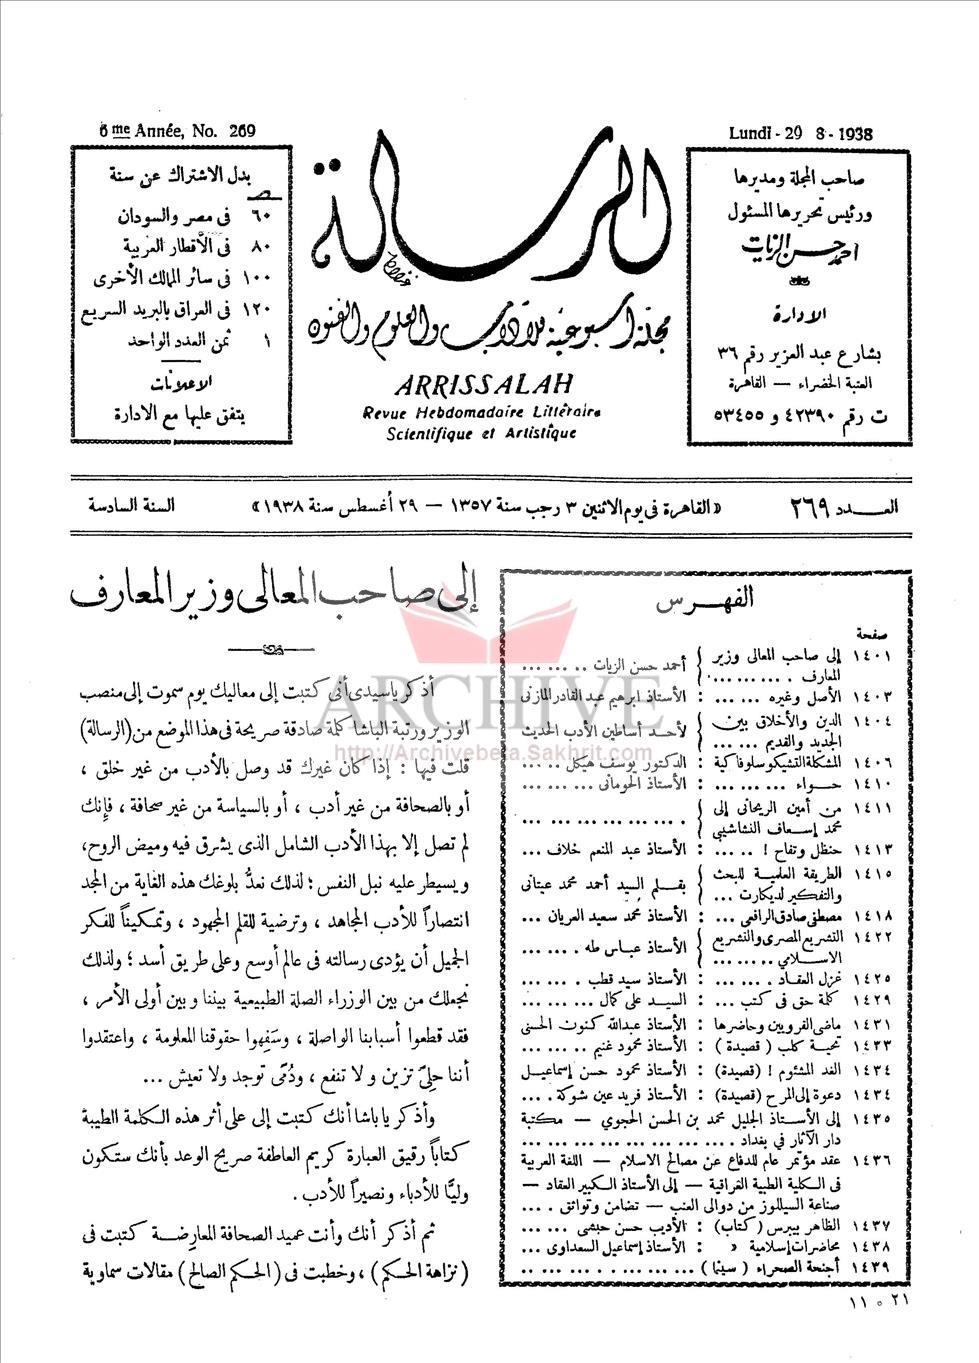 6me Année, No. 269
Lundi - 29 8 - 1938
صاحب المجلة ومديرها
ورئيس تحريرها المسئول
احمد حسن الزيات
الادارة
بشارع عبد العزيز رقم ٣٦
العتبة الخضراء — القاهرة
ت رقم ٤٢٣٩٠ و ٥٣٤٥٥
الرسالة
مجلة أسبوعية للآداب والعلوم والفنون
ARRISSALAH
Revue Hebdomadaire Littéraire
Scientifique et Artistique
بدل الاشتراك عن سنة
ص
٦٠ فى مصر والسودان
٨٠ فى الأقطار العربية
١٠٠ فى سائر الممالك الأخرى
١٢٠ فى العراق بالبريد السريع
١ ثمن العدد الواحد
الاعلانات
يتفق عليها مع الادارة
العـــدد ٢٦٩
« القاهرة فى يوم الاثنين ٣ رجب سنة ١٣٥٧ — ٢٩ أغسطس سنة ١٩٣٨ »
السنة السادسة
الفهـرس
صفحة
١٤٠١ إلى صاحب المعالى وزير المعارف ... : أحمد حسن الزيات ...
١٤٠٣ الأصل وغيره ... : الأستاذ ابرهيم عبد القادر المازنى
١٤٠٤ الدين والأخلاق بين الجديد والقديم ... : لأحد أساطين الأدب الحديث
١٤٠٦ المشكلة التشيكوسلوفاكية : الدكتور يوسف هيكل ...
١٤١٠ حــواء ... : الأستاذ الحومانى ...
١٤١١ من أمين الريحانى إلى محمد إسعاف النشاشيبي ...
١٤١٣ حنظل وتفاح ! ... : الأستاذ عبد المنعم خلاف ...
١٤١٥ الطريقة العلمية للبحث والتفكير لديكارت ... : بقــلم السيد أحمد محمد عيتانى
١٤١٨ مصطفى صادق الرافعى ... : الأستاذ محمد سعيد العريان ...
١٤٢٢ التشريع المصرى والتشريع الاسلامي ... : الأستاذ عباس طه ...
١٤٢٥ غزل العقاد ... : الأستاذ سيد قطب ...
١٤٢٩ كلمة حق فى كتب ... : الســيد على كمال ...
١٤٣١ ماضى القرويين وحاضرها : الأستاذ عبدالله كنون الحسنى
١٤٣٣ تحية كلب ( قصيدة ) : الأستاذ محمود غنيم ...
١٤٣٤ الغد المشئوم ! (قصيدة) : الأستاذ محمود حسن إسماعيل
١٤٣٤ دعوة إلى المرح (قصيدة) : الأستاذ فريد عين شوكة ...
١٤٣٥ إلى الأستاذ الجليل محمد بن الحسن الحجوي — مكتبة
دار الآثار في بغداد ...
١٤٣٦ عقد مؤتمر عام للدفاع عن مصالح الاسلام — اللغة العربية
فى الكلية الطبية العراقية — إلى الأستاذ الكبير العقاد —
صناعة السيللوز من دوالى العنب — تضامن وتواثق ...
١٤٣٧ الظاهر بيبرس (كتاب) : الأديب حسن حبشى ...
١٤٣٨ محاضرات إسلامية » : الأستاذ إسماعيل السعداوى ...
١٤٣٩ أجنحة الصحراء ( سينما ) ...
إلى صاحب المعالى وزير المعارف
أذكر ياسيدى أنى كتبت إلى معاليك يوم سموت إلى منصب
الوزير ورتبة الباشا كلمة صادقة صريحة فى هذا الموضع من (الرسالة)
قلت فيها : إذا كان غيرك قد وصل بالأدب من غير خلق ،
أو بالصحافة من غير أدب ، أو بالسياسة من غير صحافة ، فإنك
لم تصل إلا بهذا الأدب الشامل الذى يشرق فيه وميض الروح،
ويسيطر عليه نبل النفس ؛ لذلك نعدُّ بلوغك هذه الغاية من المجد
انتصاراً للأدب المجاهد ، وترضية للقلم المجهود ، وتمكيناً للفكر
الجميل أن يؤدى رسالته فى عالم أوسع وعلى طريق أسد ؛ ولذلك
نجعلك من بين الوزراء الصلة الطبيعية بيننا وبين أولى الأمر ،
فقد قطعوا أسبابنا الواصلة ، وسَفِهوا حقوقنا المعلومة ، واعتقدوا
أننا حلِىّ تزين ولا تنفع ، ودُمًى توجد ولا تعيش ...
وأذكر ياباشا أنك كتبت إلى على أثر هذه الكلمة الطيبة
كتاباً رقيق العبارة كريم العاطفة صريح الوعد بأنك ستكون
وليًّا للأدباء ونصيراً للأدب .
ثم أذكر أنك وأنت عميد الصحافة المعارضة كتبت فى
(نزاهة الحكم) ، وخطبت فى (الحكم الصالح) مقالات سماوية
٢١ ٥ ١١
ARCHIVE
http://Archivebeta.Sakhrit.com